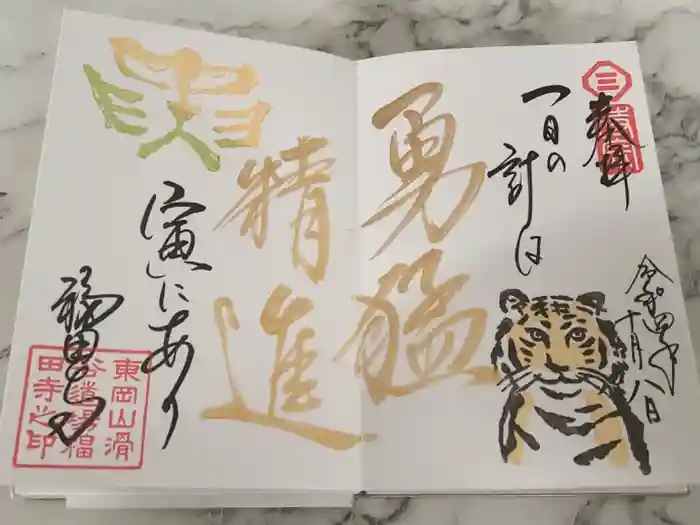 奉拝
令和四年十月八日
一日の計は
勇猛
精進
寅にあり
福田寺
東岡山滑
谷道場福
田寺之印
三